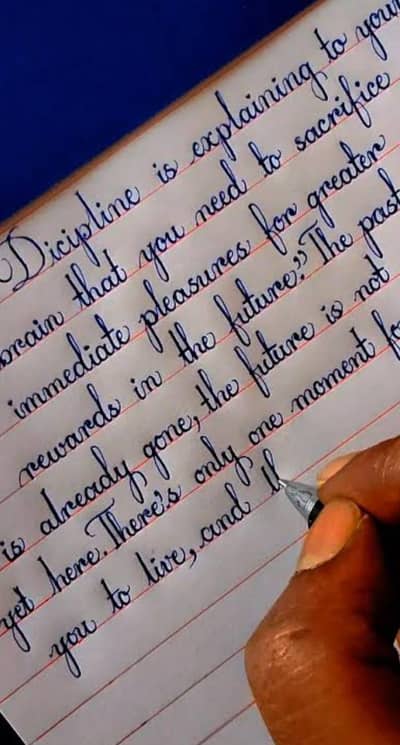 Dicipline is explaining to your
brain that you need to sacrifice
immediate pleasures for greater
rewards in the future." The past
is already gone, the future is not
yet here. There's only one moment for
you to live, and th